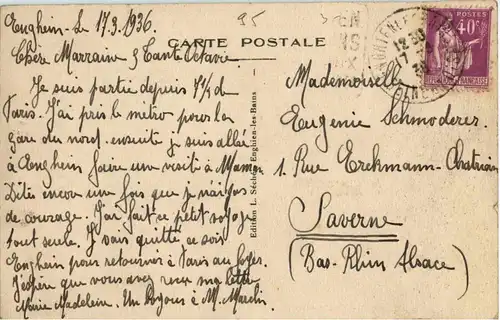 Enghien-le 17.3.1936
95
CARTE POSTALE
Chère Marraine & Tante Octavie
Je suis partie depuis 1h¼ de
Paris. J'ai pris le métro pour la
gare du nord ensuite je suis allé
à Enghein faire une visite à Maman
Dites encor une fois que je n'ai pas
de courage. J'ai fait ce petit voyage
tout seule. Je vais quitté ce soir
Enghein pour retourner à Paris au foyer.
J'espère que vous avez reçu ma lettre
Marie Madeleine. Un Bojous à M. Marcelin
Edition L. Séchoix, Enghien-les-Bains
12 30
17
36
POSTES
40c
RÉPUBLIQUE FRANÇAISE
Mademoiselle
Eugenie Schmoderer
1. Rue Erckmann-Chatrian
Saverne
(Bas-Rhin Alsace)